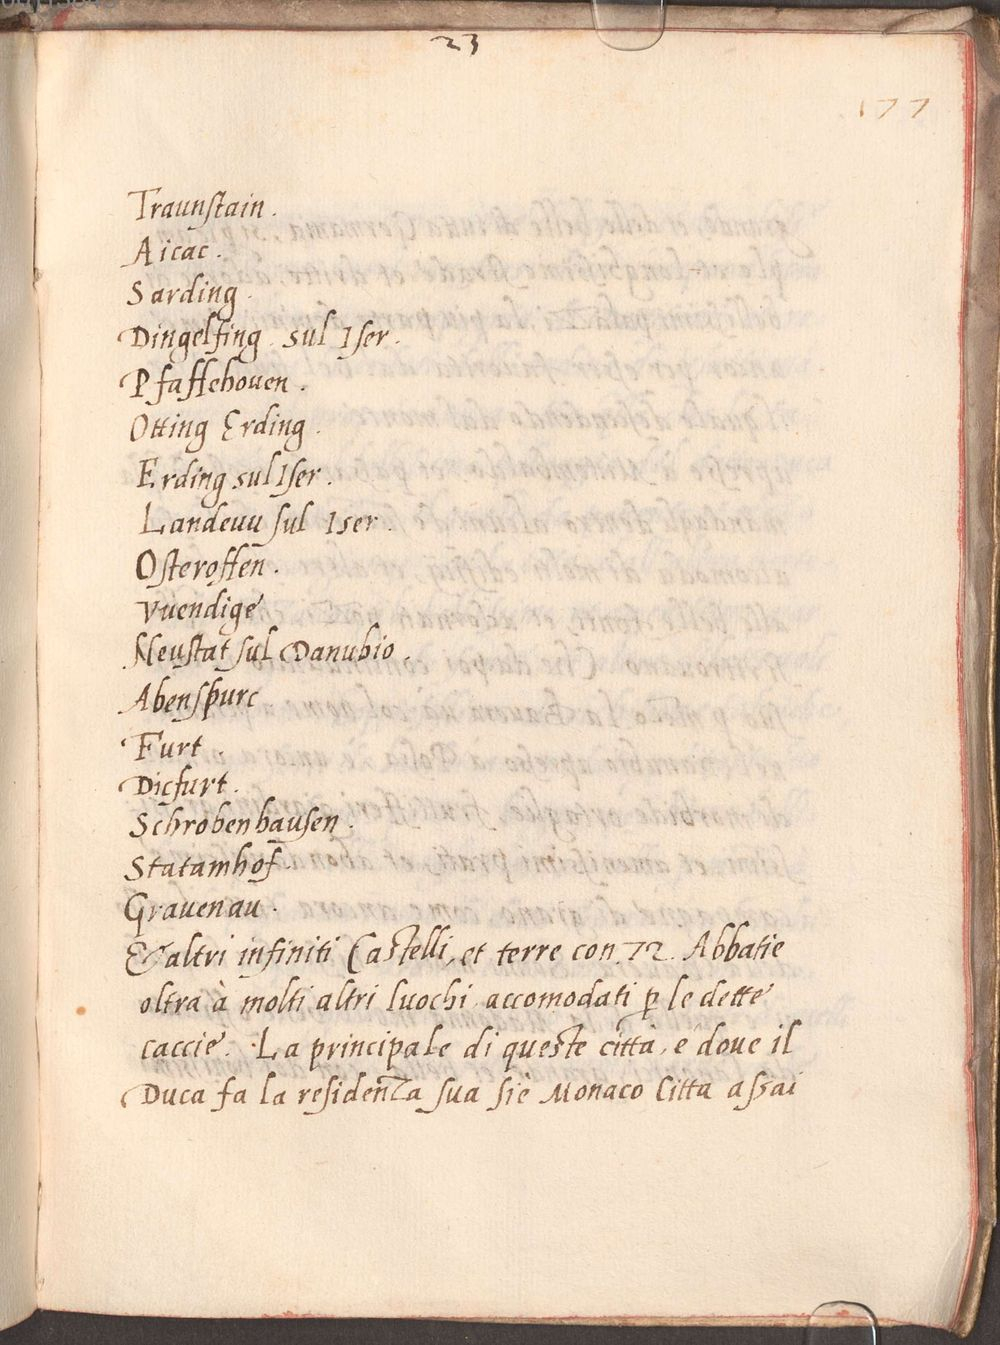 23
177
Traunstain.
Aicac.
Sarding.
Dingelfing. sul Iser.
Pfaffehouen.
Otting Erding.
Erding sul Iser.
Landeuu sul Iser.
Osteroffen.
Vuendige
Neustat sul Danubio.
Abenspurc
Furt.
Dicfurt.
Schrobenhausen.
Statamhof.
Grauenau.
Et altri infiniti Castelli, et terre con .72. Abbatie
oltra à molti altri luochi accomodati p le dette
caccie. La principale di queste città, e doue il
Duca fa la residenza sua si è Monaco Città assai